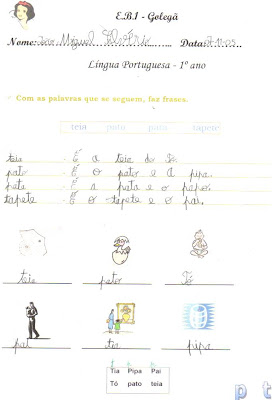 E.B.1 - Golegã
Nome: João Miguel Data: 7-11-05
Língua Portuguesa - 1º ano
Com as palavras que se seguem, faz frases.
teia pato pata tapete
teia - É a teia do Tó.
pato - É o pato e a pipa.
pata - É a pata e o papo.
tapete - É o tapete e o pai.
teia pato Tó
pai tia pipa
Tia Pipa Pai
Tó pato teia
p t